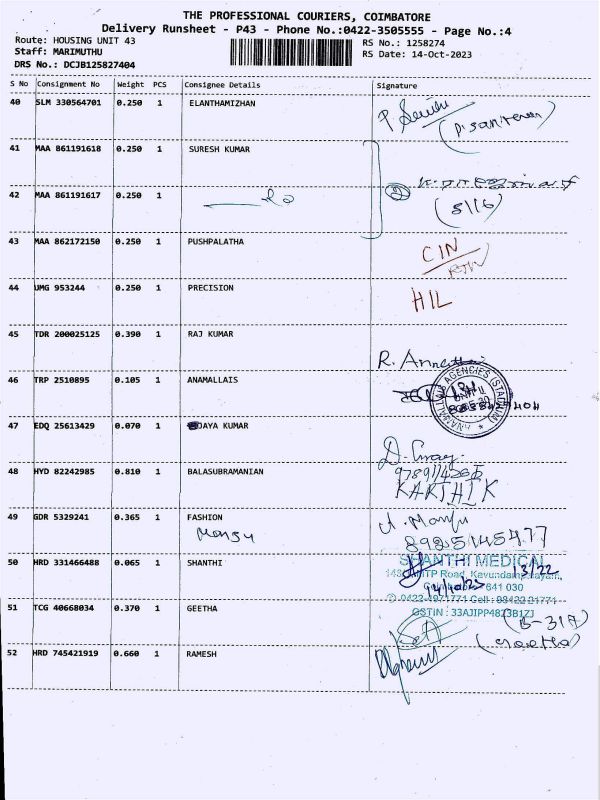 THE PROFESSIONAL COURIERS, COIMBATORE
Delivery Runsheet - P43 - Phone No.:0422-3505555 - Page No.:4
Route: HOUSING UNIT 43
RS No.: 1258274
Staff: MARIMUTHU
RS Date: 14-Oct-2023
DRS No.: DCJB125827404
S No Consignment No Weight PCS Consignee Details Signature
40 SLM 330564701 0.250 1 ELANTHAMIZHAN
41 MAA 861191618 0.250 1 SURESH KUMAR
42 MAA 861191617 0.250 1
(5/16)
43 MAA 862172150 0.250 1 PUSHPALATHA
CIN
44 UMG 953244 0.250 1 PRECISION
HIL
45 TDR 200025125 0.390 1 RAJ KUMAR
R.
46 TRP 2510895 0.105 1 ANAMALLAIS
47 EDQ 25613429 0.070 1 DAYA KUMAR
48 HYD 82242985 0.810 1 BALASUBRAMANIAN
KARTHIK
49 GDR 5329241 0.365 1 FASHION
Manju
A. Manju
8925145477
50 HRD 331466488 0.065 1 SHANTHI
SHANTHI MEDICAL
641 030
14/10/23
51 TCG 40668034 0.370 1 GEETHA
GSTIN : 33AJIPP4823B1ZJ
(B-31A)
(Geetha)
52 HRD 745421919 0.660 1 RAMESH